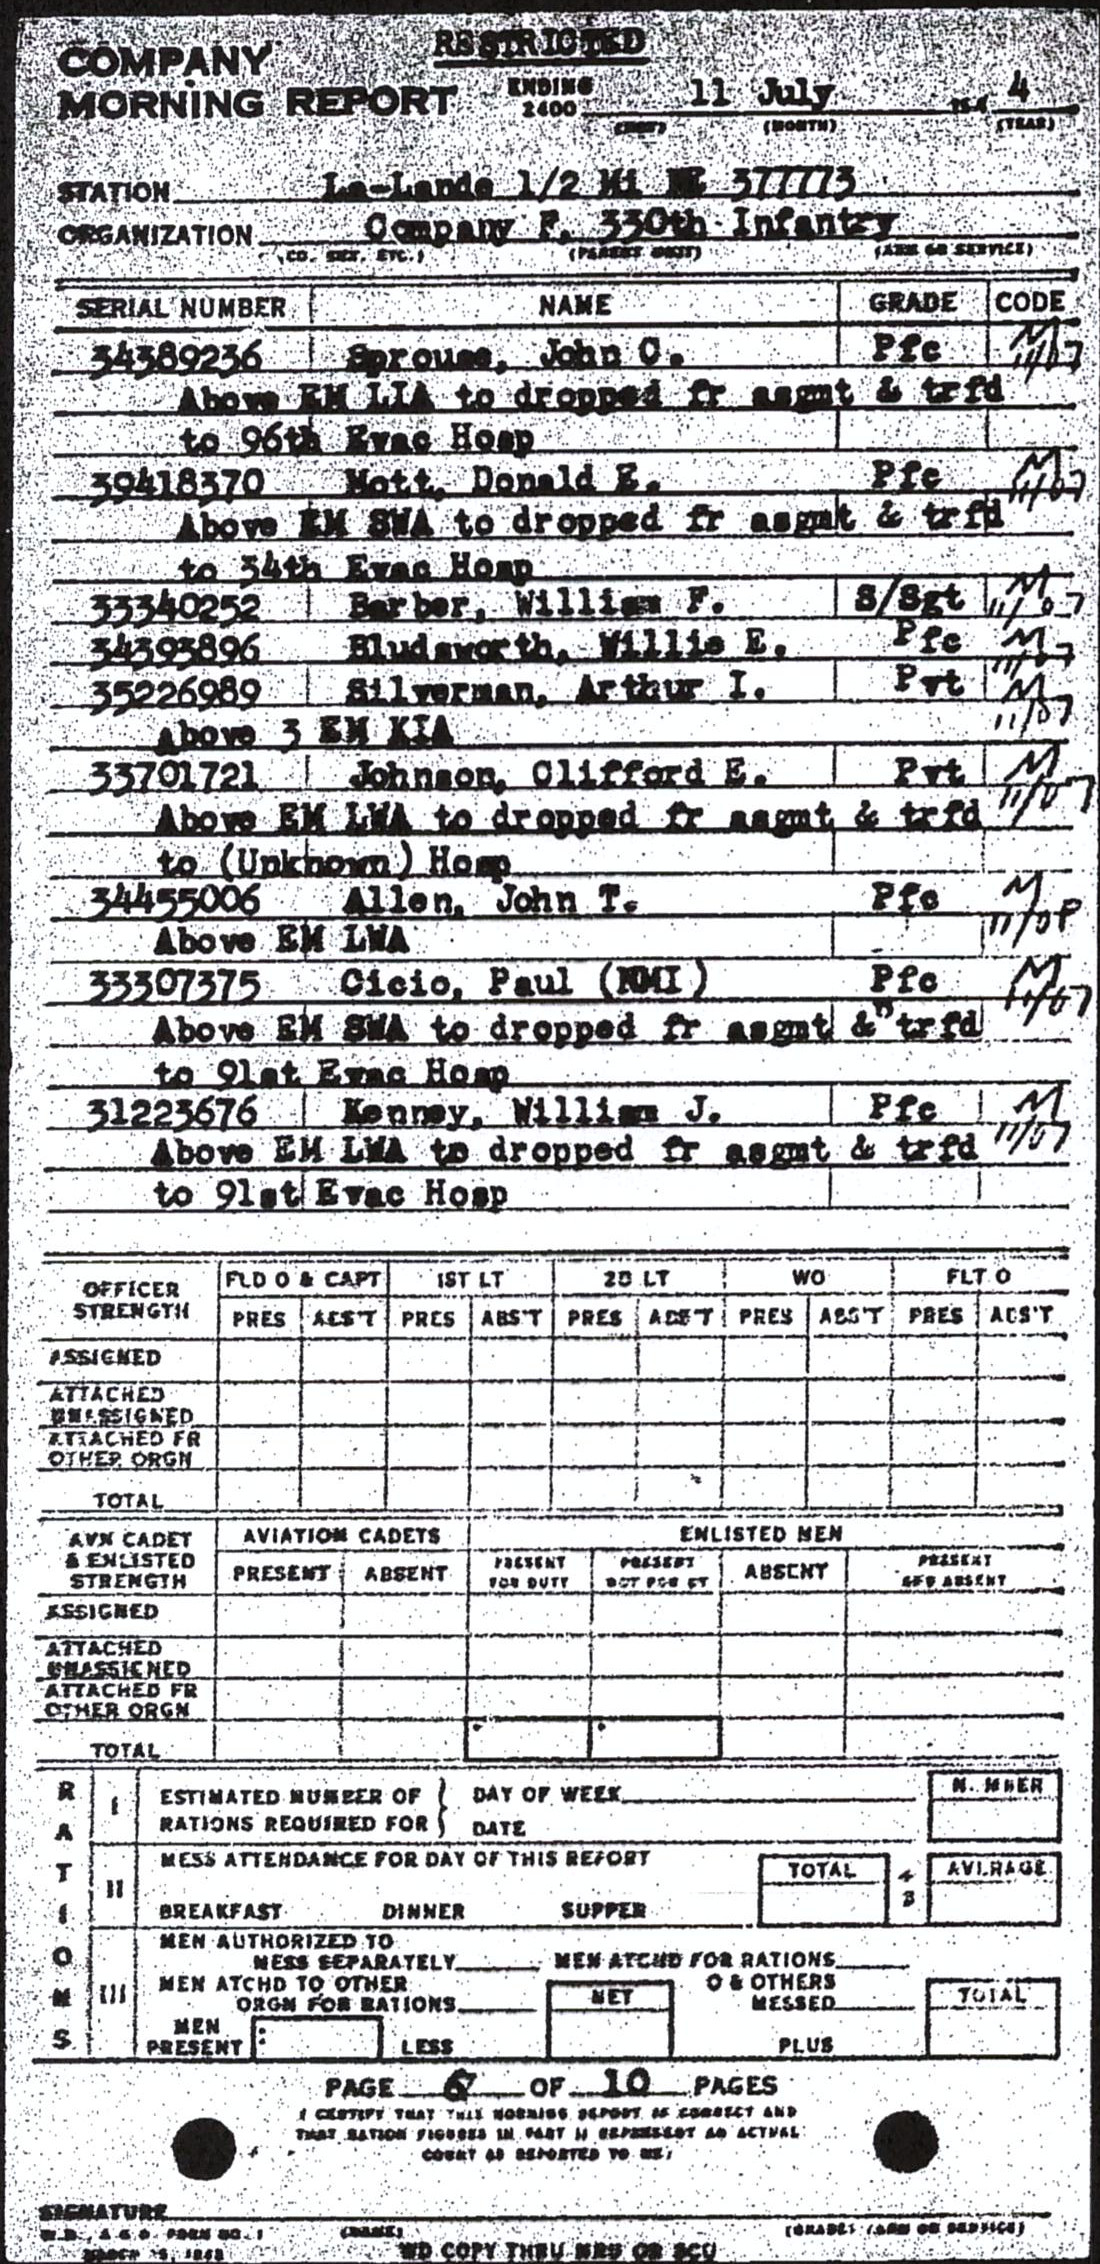 RESTRICTED
COMPANY
MORNING REPORT
ENDING
2400
11 July
194 4
(DAY) (MONTH) (YEAR)
STATION La-Lande 1/2 Mi NE 377773
ORGANIZATION Company F, 330th Infantry
(CO. DET. ETC.) (PARENT UNIT) (ARM OR SERVICE)
SERIAL NUMBER NAME GRADE CODE
34389236 Sprouse, John C. Pfc M 11/07
Above EM LIA to dropped fr asgmt & trfd
to 96th Evac Hosp
39418370 Mott, Donald E. Pfc M 11/07
Above EM SWA to dropped fr asgmt & trfd
to 34th Evac Hosp
33340252 Barber, William F. S/Sgt M 11/07
34393896 Bludsworth, Willie E. Pfc M 11/07
35226989 Silverman, Arthur I. Pvt M 11/07
Above 3 EM KIA
33701721 Johnson, Clifford E. Pvt M 11/07
Above EM LWA to dropped fr asgmt & trfd
to (Unknown) Hosp
34455006 Allen, John T. Pfc M
Above EM LWA
33307375 Cicio, Paul (NMI) Pfc M 11/07
Above EM SWA to dropped fr asgmt & trfd
to 91st Evac Hosp
31223676 Kenney, William J. Pfc M 11/07
Above EM LWA to dropped fr asgmt & trfd
to 91st Evac Hosp
OFFICER STRENGTH FLD O & CAPT 1ST LT 2D LT WO FLT O
PRES ABS'T PRES ABS'T PRES ABS'T PRES ABS'T PRES ABS'T
ASSIGNED
ATTACHED
UNASSIGNED
ATTACHED FR
OTHER ORGN
TOTAL
AVN CADET
& ENLISTED
STRENGTH
AVIATION CADETS ENLISTED MEN
PRESENT ABSENT PRESENT FOR DUTY PRESENT NOT FOR DY ABSENT PRESENT AND ABSENT
ASSIGNED
ATTACHED
UNASSIGNED
ATTACHED FR
OTHER ORGN
TOTAL
RATIONS
I ESTIMATED NUMBER OF RATIONS REQUIRED FOR } DAY OF WEEK
DATE
NUMBER
II MESS ATTENDANCE FOR DAY OF THIS REPORT
BREAKFAST DINNER SUPPER
TOTAL ÷ 3 AVERAGE
III MEN AUTHORIZED TO
MESS SEPARATELY MEN ATCHD FOR RATIONS
MEN ATCHD TO OTHER
ORGN FOR RATIONS NET O & OTHERS
MESSED TOTAL
MEN
PRESENT LESS PLUS
PAGE 6 OF 10 PAGES
I CERTIFY THAT THIS MORNING REPORT IS CORRECT AND
THAT RATION FIGURES IN PART II REPRESENT AN ACTUAL
COUNT AS REPORTED TO ME:
SIGNATURE
W.D., A.G.O. FORM NO. 1 (NAME) (GRADE) (ARM OR SERVICE)
WD COPY THRU MRU OR SCU